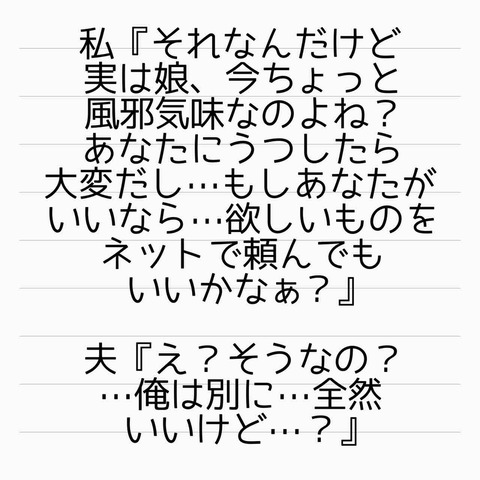 私『それなんだけど
実は娘、今ちょっと
風邪気味なのよね？
あなたにうつしたら
大変だし…もしあなたが
いいなら…欲しいものを
ネットで頼んでも
いいかなぁ？』
夫『え？そうなの？
…俺は別に…全然
いいけど…？』